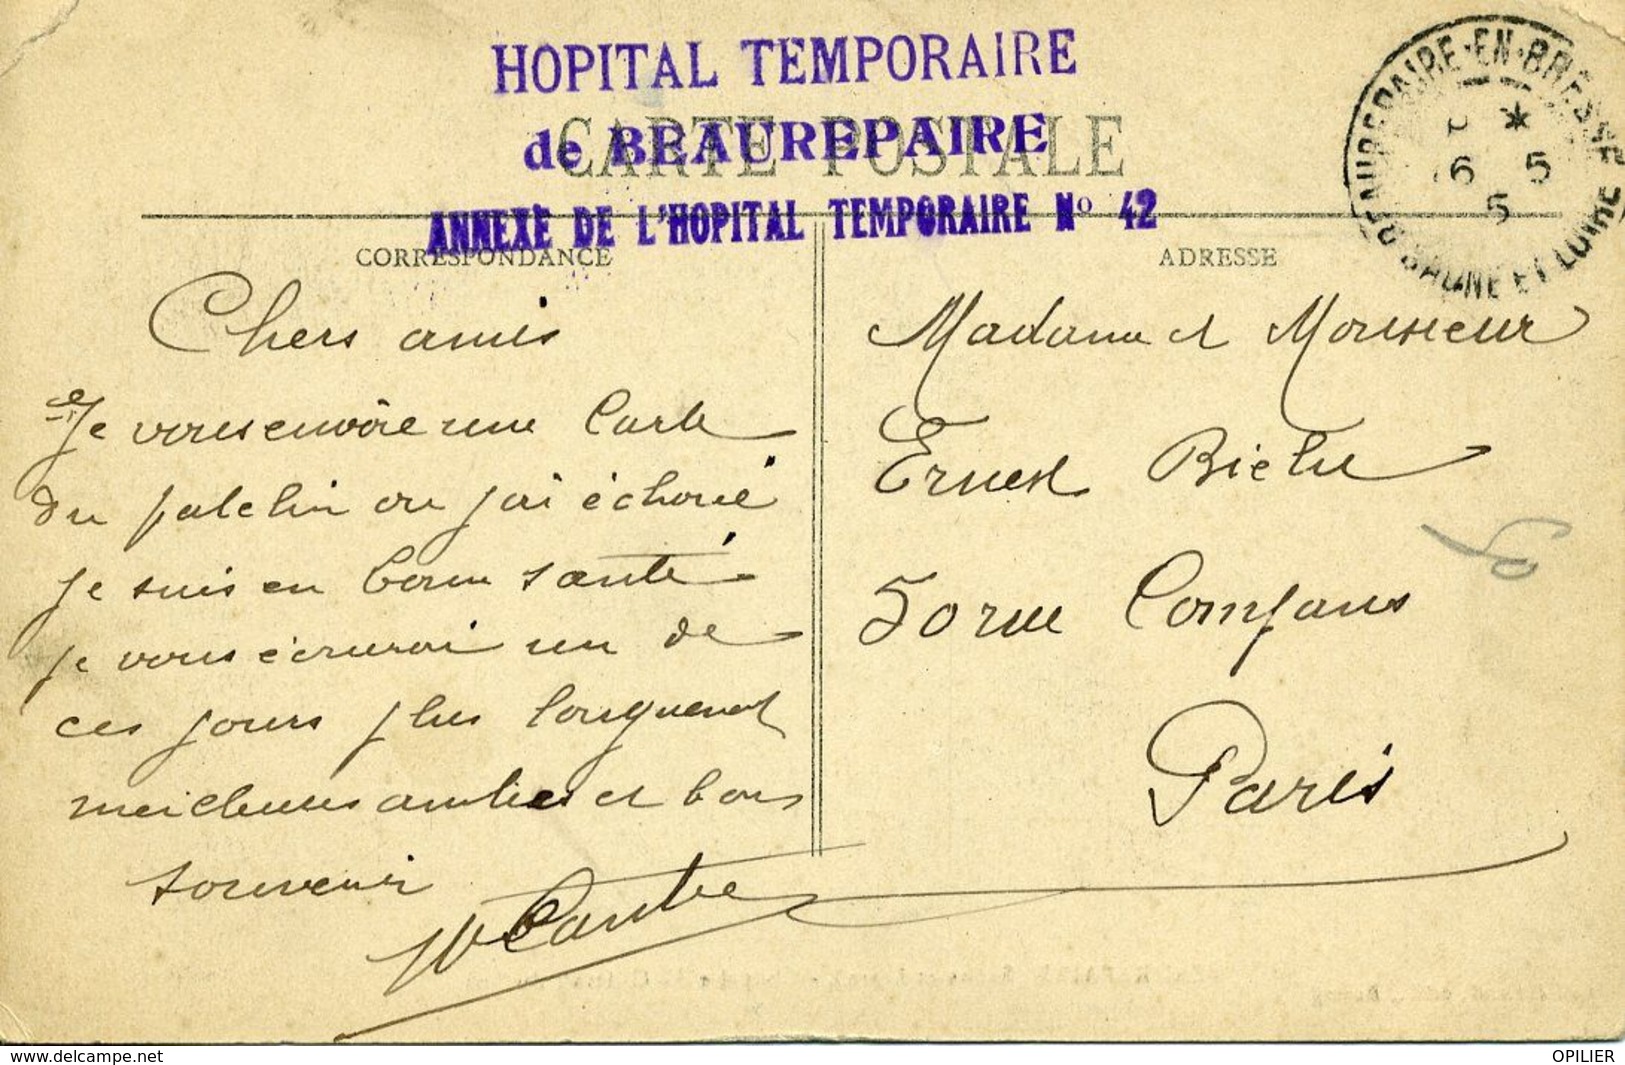 HOPITAL TEMPORAIRE
de BEAUREPAIRE
CARTE POSTALE
ANNEXE DE L'HOPITAL TEMPORAIRE No 42
BEAUREPAIRE-EN-BRESSE
6 5
5
SAONE ET LOIRE
CORRESPONDANCE
Chers amis
Je vous envoie une Carte
du patelin ou j'ai échoué
je suis en bonne santé
je vous écrirai un de
ces jours plus longuement
meilleures amitiés et bons
souvenir
Cantre
ADRESSE
Madame et Monsieur
Ernest
50 rue Compans
Paris
www.delcampe.net
OPILIER